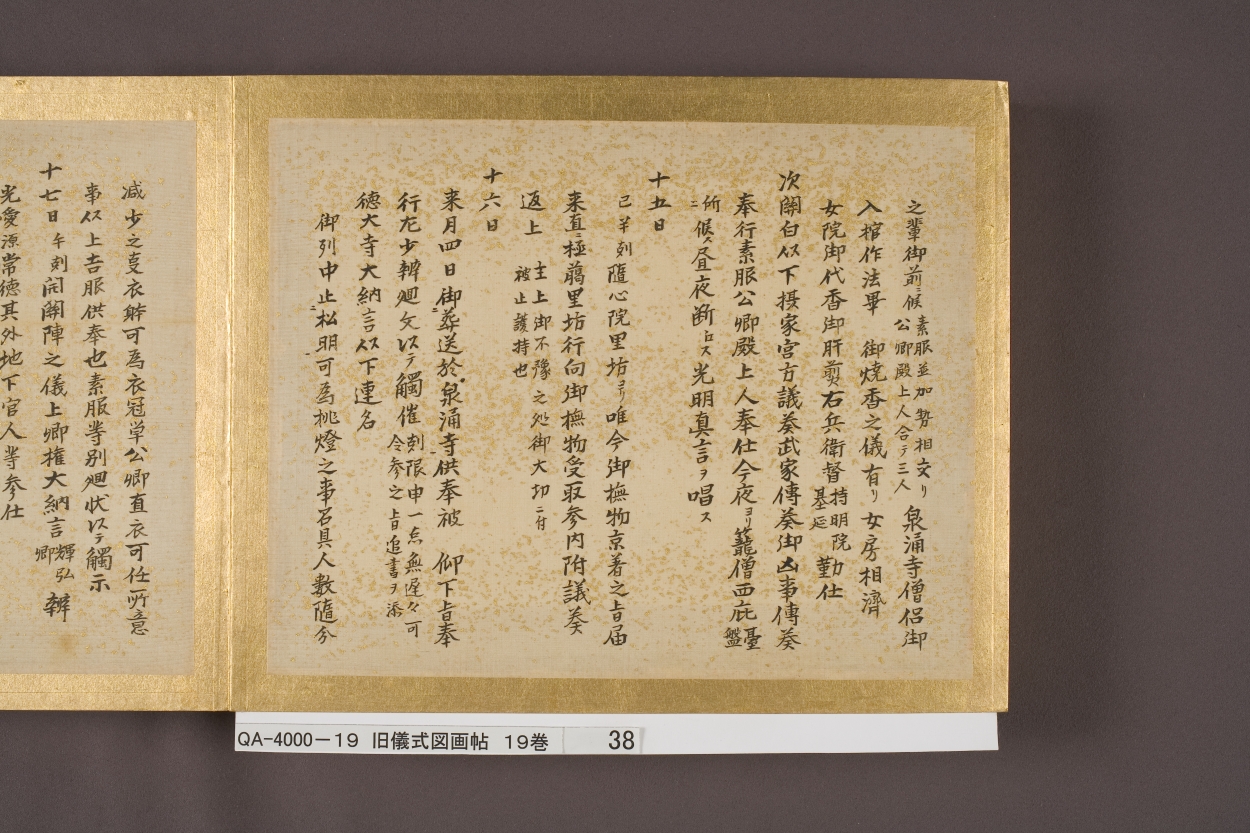 之輩御前ニ候 素服並加勢相交リ 公卿殿上人合テ三人 泉涌寺僧侶御
入棺作法畢 御焼香之儀有リ 女房相濟
女院御代香御肝煎右兵衛督 持明院基延 勤仕
次関白以下摂家宮方議奏武家傳奏御凶事傳奏
奉行素服公卿殿上人奉仕今夜ヨリ籠僧西庇 臺盤
所ニ候ス昼夜断ニス光明真言ヲ唱ス
十五日
已半刻隨心院里坊ヨリ唯今御撫物京着之旨届
来直ニ極﨟里坊行向御撫物受取参内附議奏
返上 主上御不豫之処御大切ニ付 被止護持也
十六日
来月四日御葬送於泉涌寺供奉被 仰下旨奉
行左少辨廻文以テ觸催 刻限申一点無遅々可 令参之旨追書ヲ添
徳大寺大納言以下連名
御列中止ニ松明可為挑燈之事召具人数隨分
減少之支衣躰可為衣冠単公卿直衣可任所意
事以上吉服供奉也素服等別廻状以テ觸示
十七日 午刻 開関陣之儀上卿権大納言 輝弘卿 辨
光愛源常徳其外地下官人等参仕
QA-4000-19 旧儀式図画帖 19巻 38